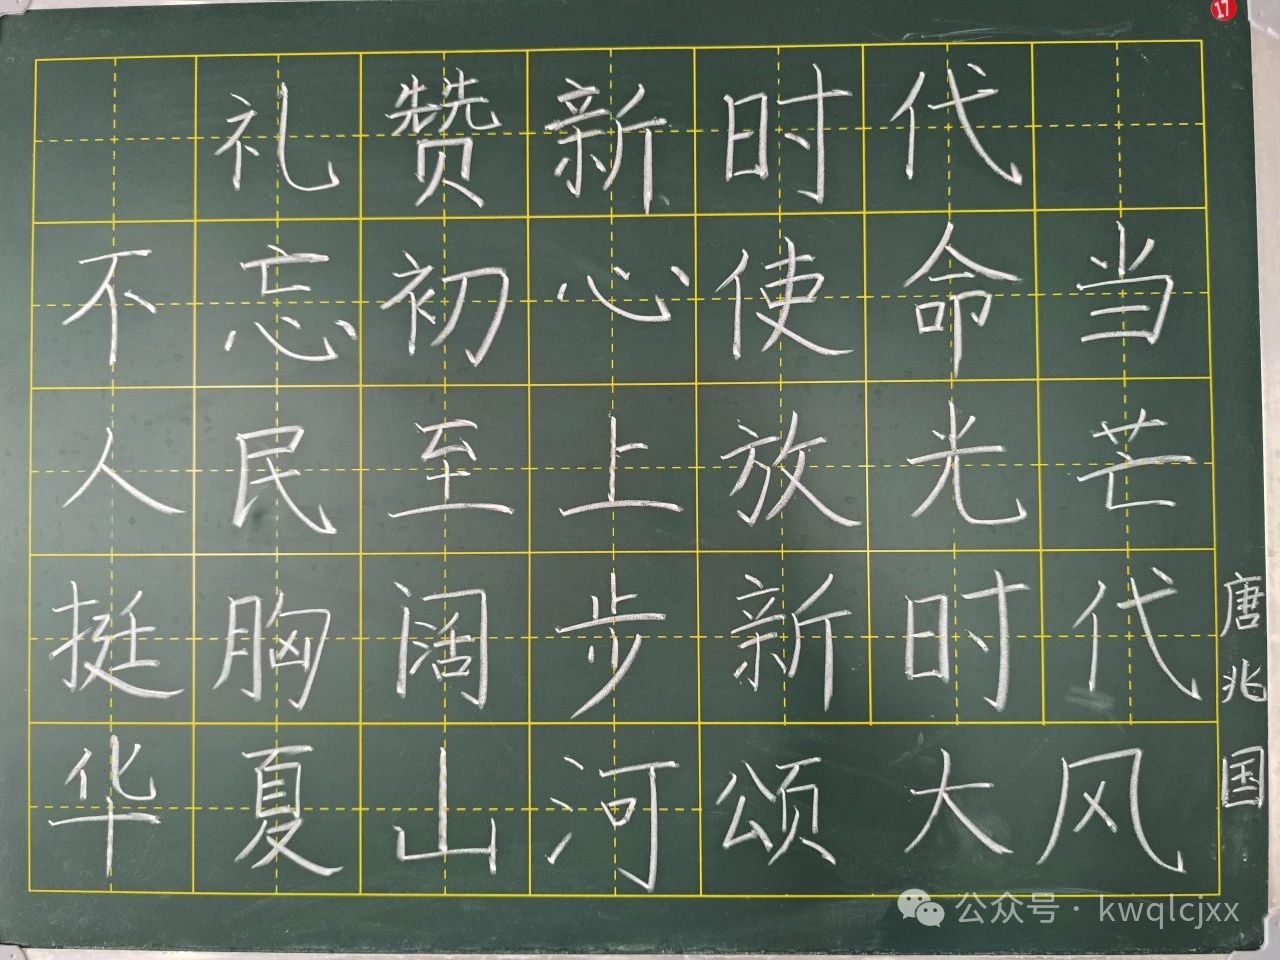 17
礼赞新时代
不忘初心使命当
人民至上放光芒
挺胸阔步新时代
华夏山河颂大风
唐兆国
公众号 · kwqlcjxx